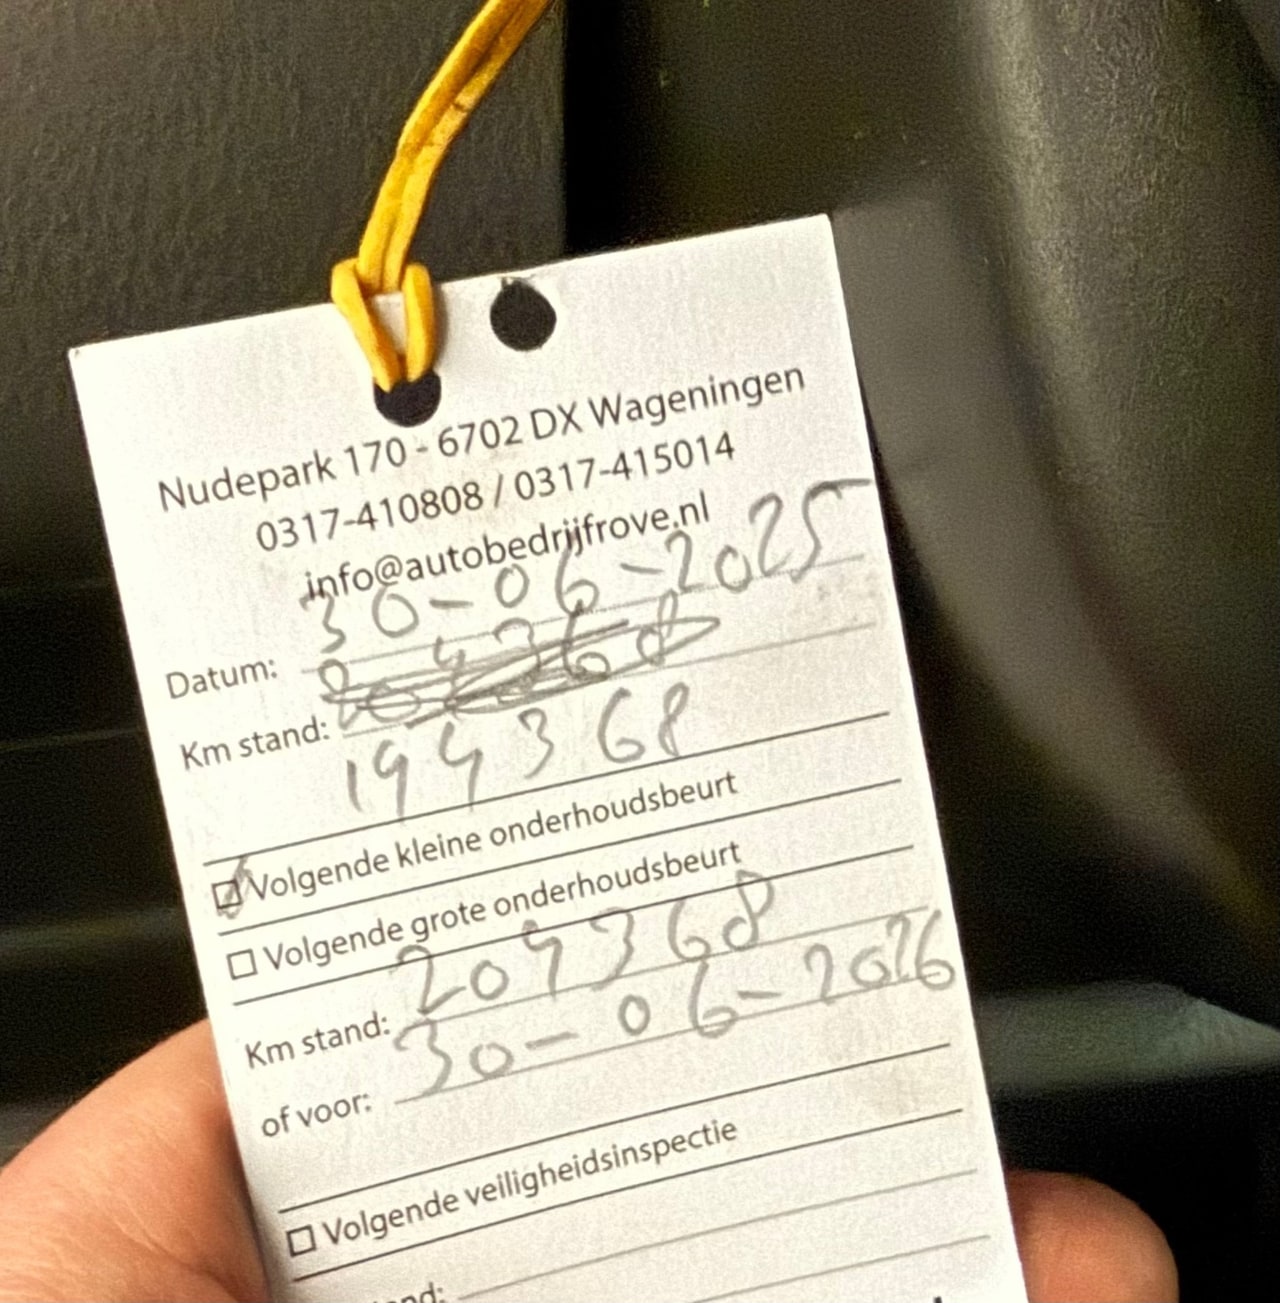 Nudepark 170 - 6702 DX Wageningen
0317-410808 / 0317-415014
info@autobedrijfrove.nl
Datum: 30-06-2025
Km stand: 204368
194368
Volgende kleine onderhoudsbeurt
Volgende grote onderhoudsbeurt
Km stand: 204368
of voor: 30-06-2026
Volgende veiligheidsinspectie